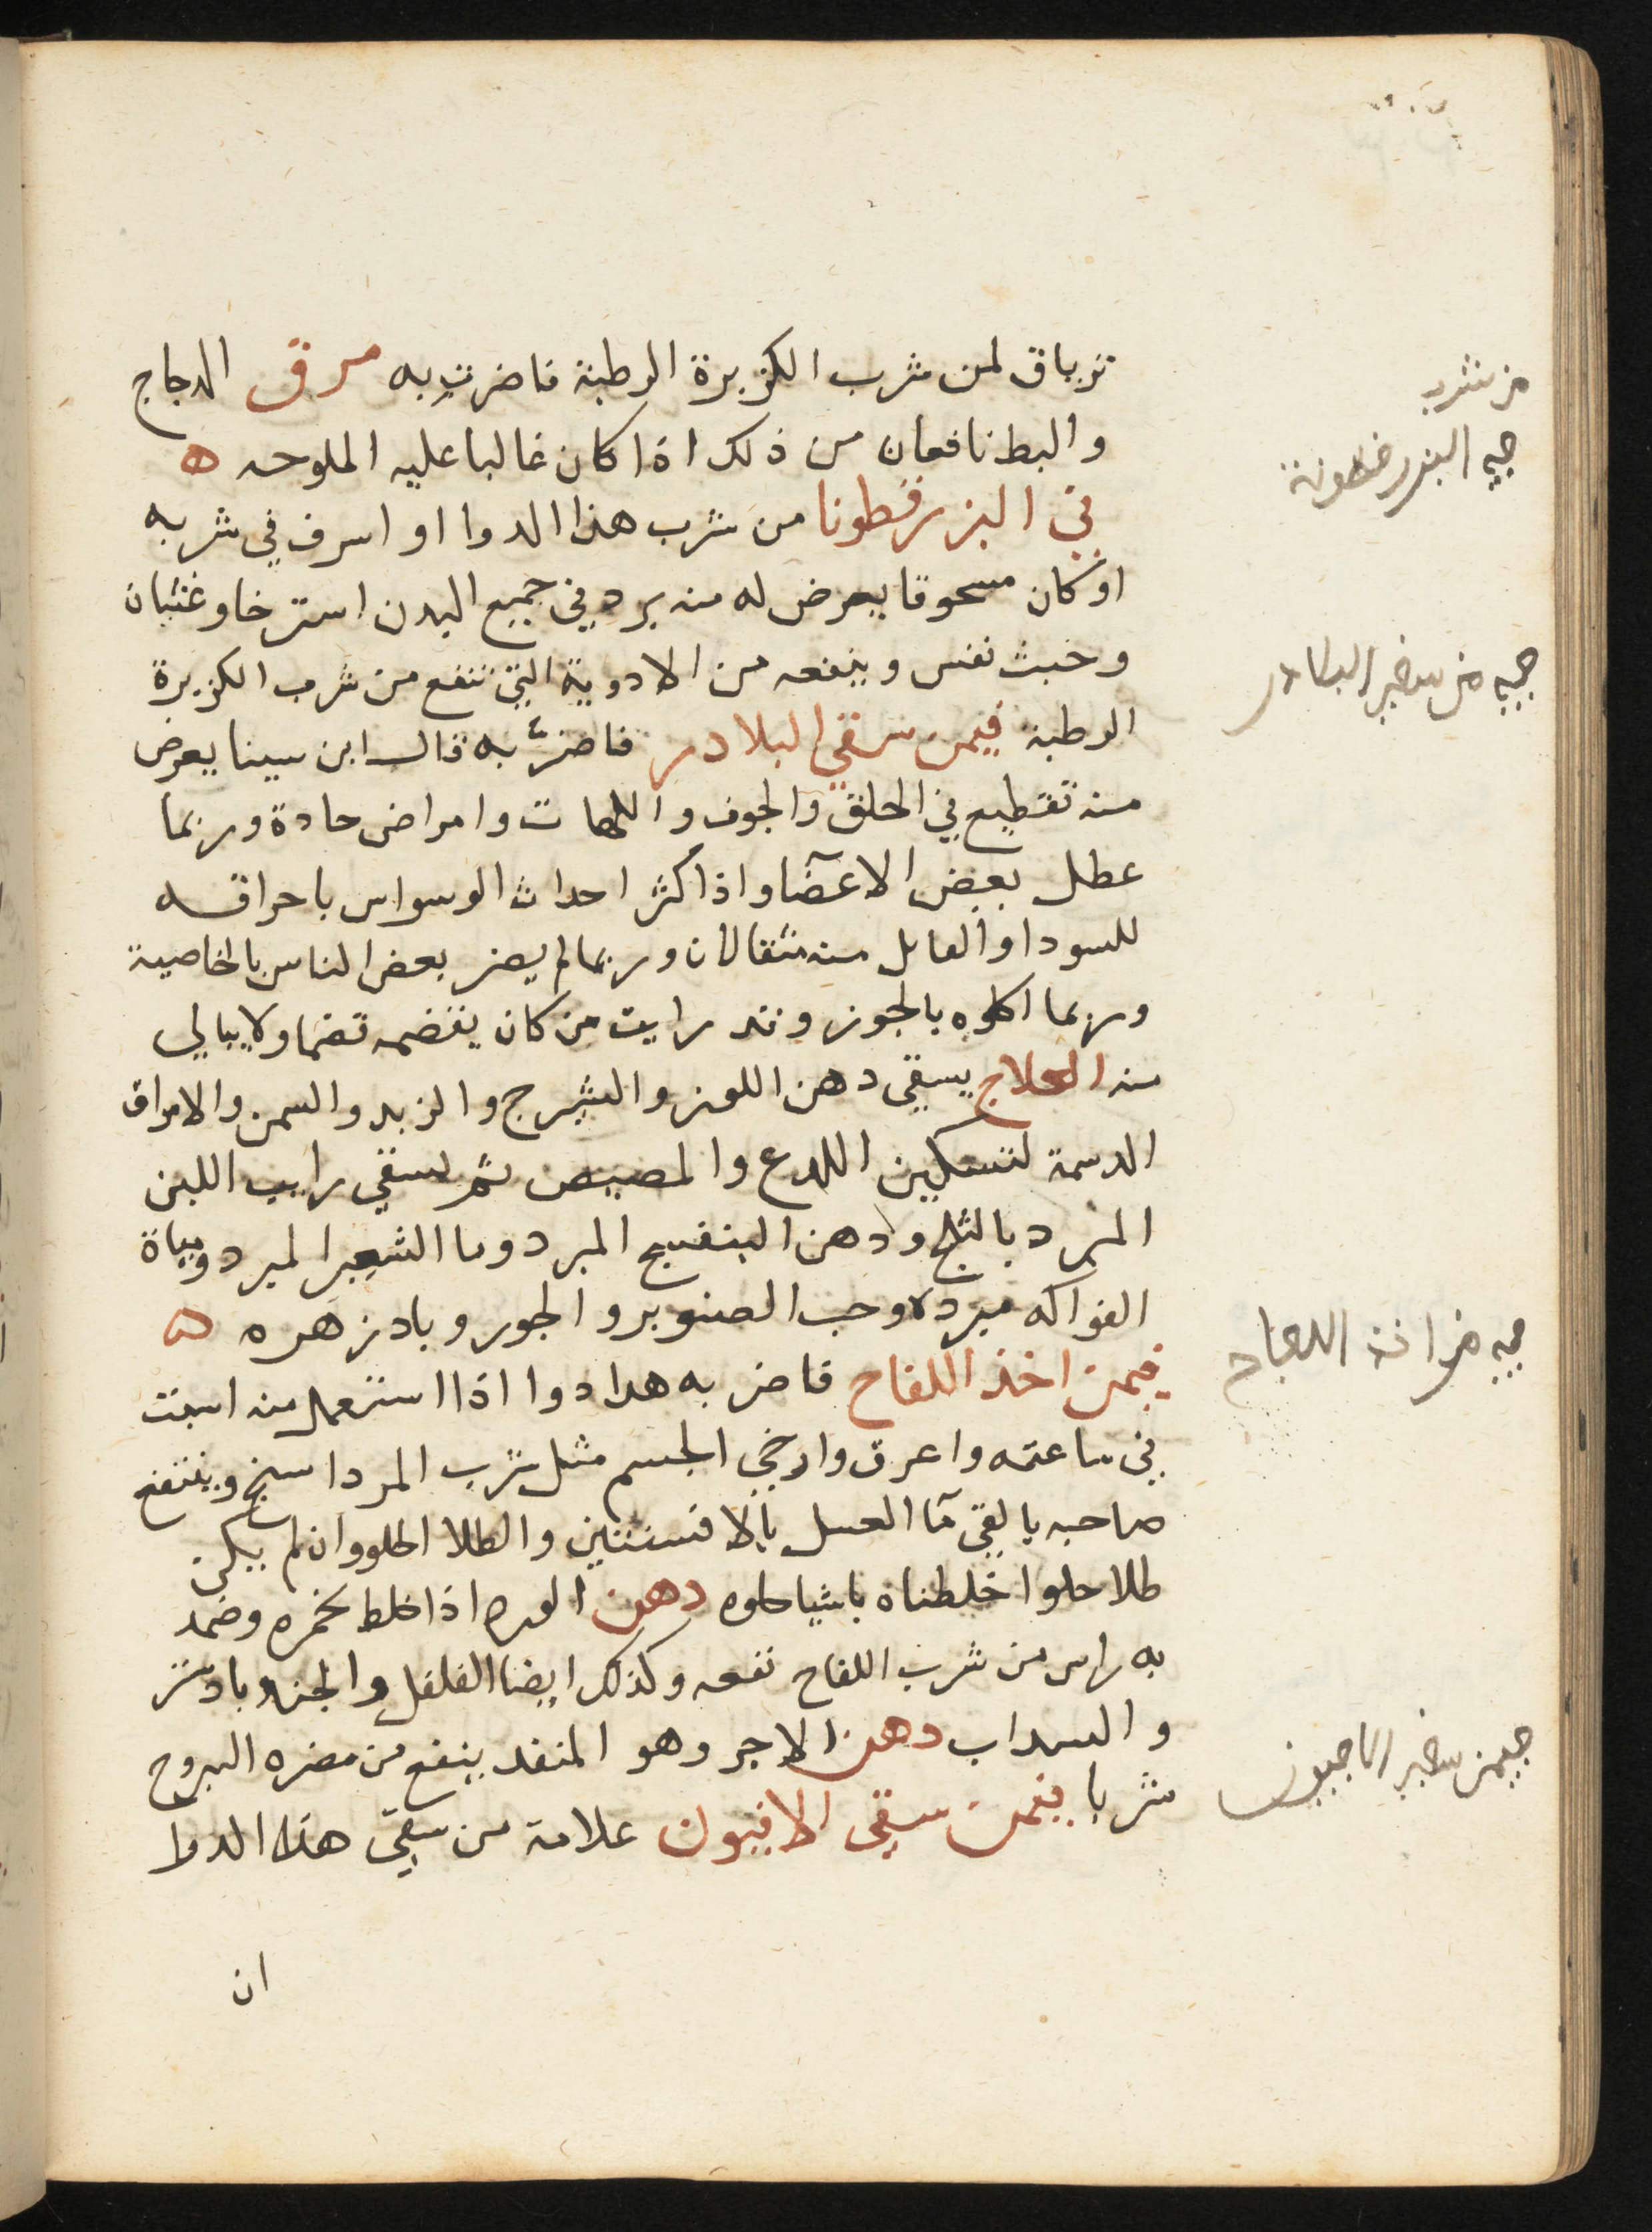 ترياق لمن شرب الكزبرة الرطبة فاضرت به مرق الدجاج
والبط نافعان من ذلك اذا كان غالبا عليه الملوحه ه
في البزرقطونا من شرب هذا الدوا او اسرف في شربه
او كان مسحوقا يعرض له منه برد في جميع البدن استرخا وغثيان
وخبث نفس وينفعه من الادوية التي تنفع من شرب الكزبرة
الرطبة فيمن سقي البلادر فاضرّ به قال ابن سينا يعرض
منه تقطيع في الحلق والجوف واللهات وامراض حادة وربما
عطل بعض الاعضآ واذا كثر احداث الوسواس باحراقه
للسودا والقاتل منه مثقالان وربما لم يضر بعض الناس بالخاصية
وربما اكلوه بالجوز وقد رايت من كان يقضمه قضما ولا يبالي
منه العلاج يسقي دهن اللوز والشيرج والزبد والسمن والامراق
الدسمة لتسكين اللدع والمضيض ثم يسقي رايب اللبن
المبرد بالثلج ودهن البنفسج المبرد وما الشعير المبرد ومياة
الفواكه مبرده وحب الصنوبر والجوز وبادزهره ه
فيمن اخذ اللفاح فاضر به هدا دوا اذا استعمل منه اسبت
في ساعته واعرق وارخي الجسم مثل شرب المرداسنج وينتفع
صاحبه بالقي مآ العسل بالافسنتين والطلا الحلو وان لم يكن
طلا حلوا خلطناه باشيا حلوه دهن الورد اذا خلط بخمره وضمد
به راس من شرب اللفاح نفعه وكذلك ايضا الفلفل والجندبادستر
والسداب دهن الاجر وهو المنفد ينفع من مضره اليبروح
شربا فيمن سقي الافيون علامة من سقي هذا الدوا
ان
من شرب
البزرقطونة
من سقي البلادر
اللفاح